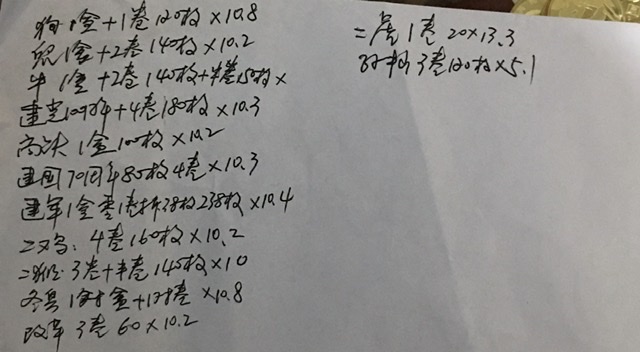 狗1盒+1卷120枚×10.8
猊1盒+2卷140枚×10.2
牛1盒+2卷140枚+半卷150枚×
建党100周年+4卷180枚×10.3
高铁1盒100枚×10.2
建国70周年80枚4卷×10.3
建军1盒零1卷拆38枚238枚×10.4
二鸡:4卷160枚×10.2
二猴:3卷+半卷140枚×10
冬奥1盒+1卷×10.8
改革3卷60×10.2
二虎1卷20×13.3
3卷120枚×5.1